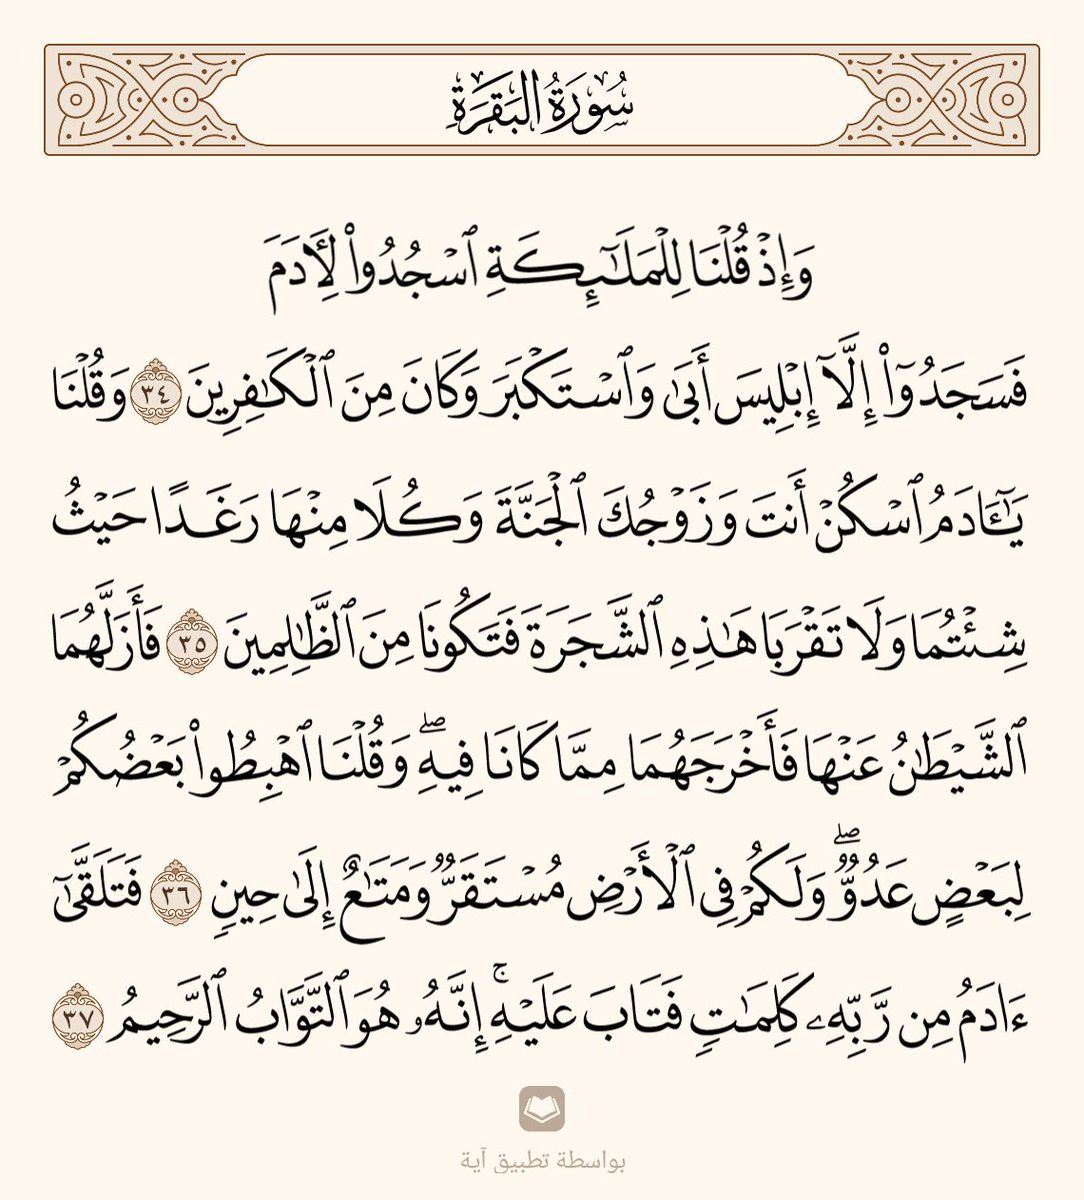 سُورَةُ البَقَرَةِ
وَإِذۡ قُلۡنَا لِلۡمَلَٰٓئِكَةِ ٱسۡجُدُواْ لِأٓدَمَ
فَسَجَدُوٓاْ إِلَّآ إِبۡلِيسَ أَبَىٰ وَٱسۡتَكۡبَرَ وَكَانَ مِنَ ٱلۡكَٰفِرِينَ ٣٤ وَقُلۡنَا
يَٰٓـَٔادَمُ ٱسۡكُنۡ أَنتَ وَزَوۡجُكَ ٱلۡجَنَّةَ وَكُلَا مِنۡهَا رَغَدًا حَيۡثُ
شِئۡتُمَا وَلَا تَقۡرَبَا هَٰذِهِ ٱلشَّجَرَةَ فَتَكُونَا مِنَ ٱلظَّٰلِمِينَ ٣٥ فَأَزَلَّهُمَا
ٱلشَّيۡطَٰنُ عَنۡهَا فَأَخۡرَجَهُمَا مِمَّا كَانَا فِيهِۖ وَقُلۡنَا ٱهۡبِطُواْ بَعۡضُكُمۡ
لِبَعۡضٍ عَدُوّٞۖ وَلَكُمۡ فِي ٱلۡأَرۡضِ مُسۡتَقَرّٞ وَمَتَٰعٌ إِلَىٰ حِينٖ ٣٦ فَتَلَقَّىٰٓ
ءَادَمُ مِن رَّبِّهِۦ كَلِمَٰتٖ فَتَابَ عَلَيۡهِۚ إِنَّهُۥ هُوَ ٱلتَّوَّابُ ٱلرَّحِيمُ ٣٧
بواسطة تطبيق آية